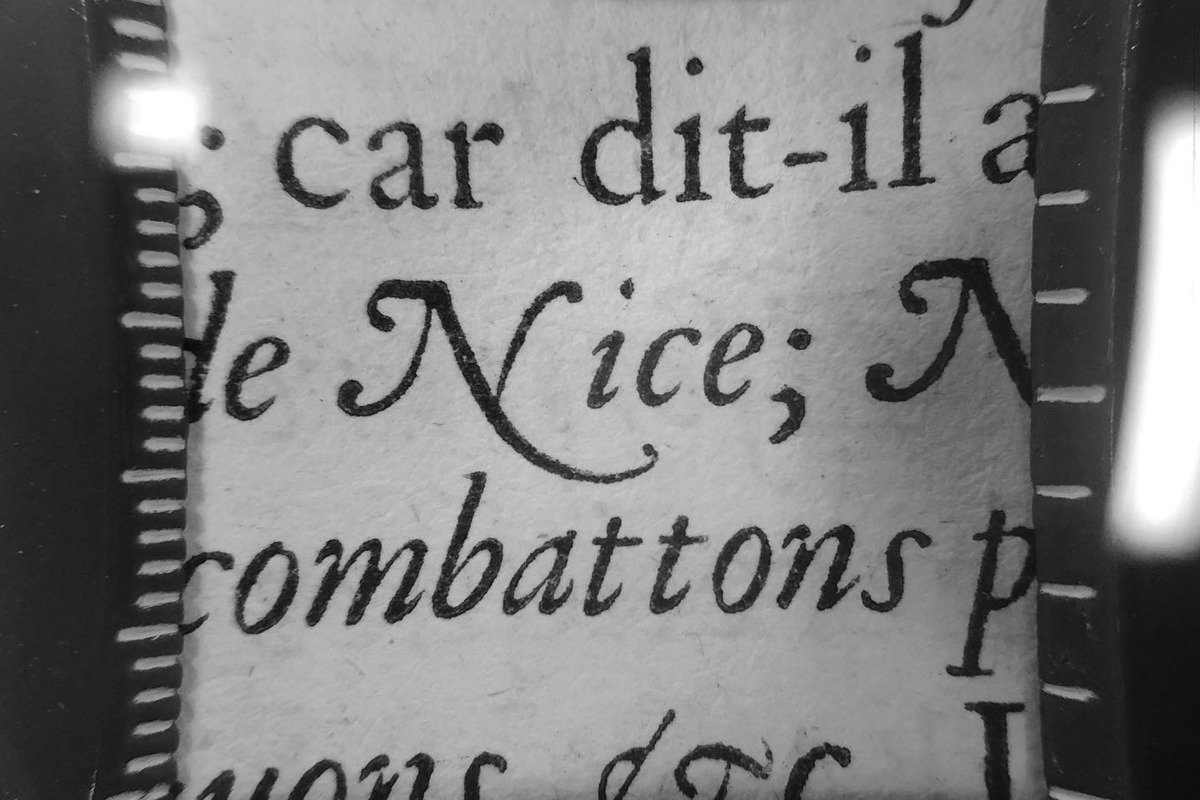 ; car dit-il a
de Nice; N
combattons p